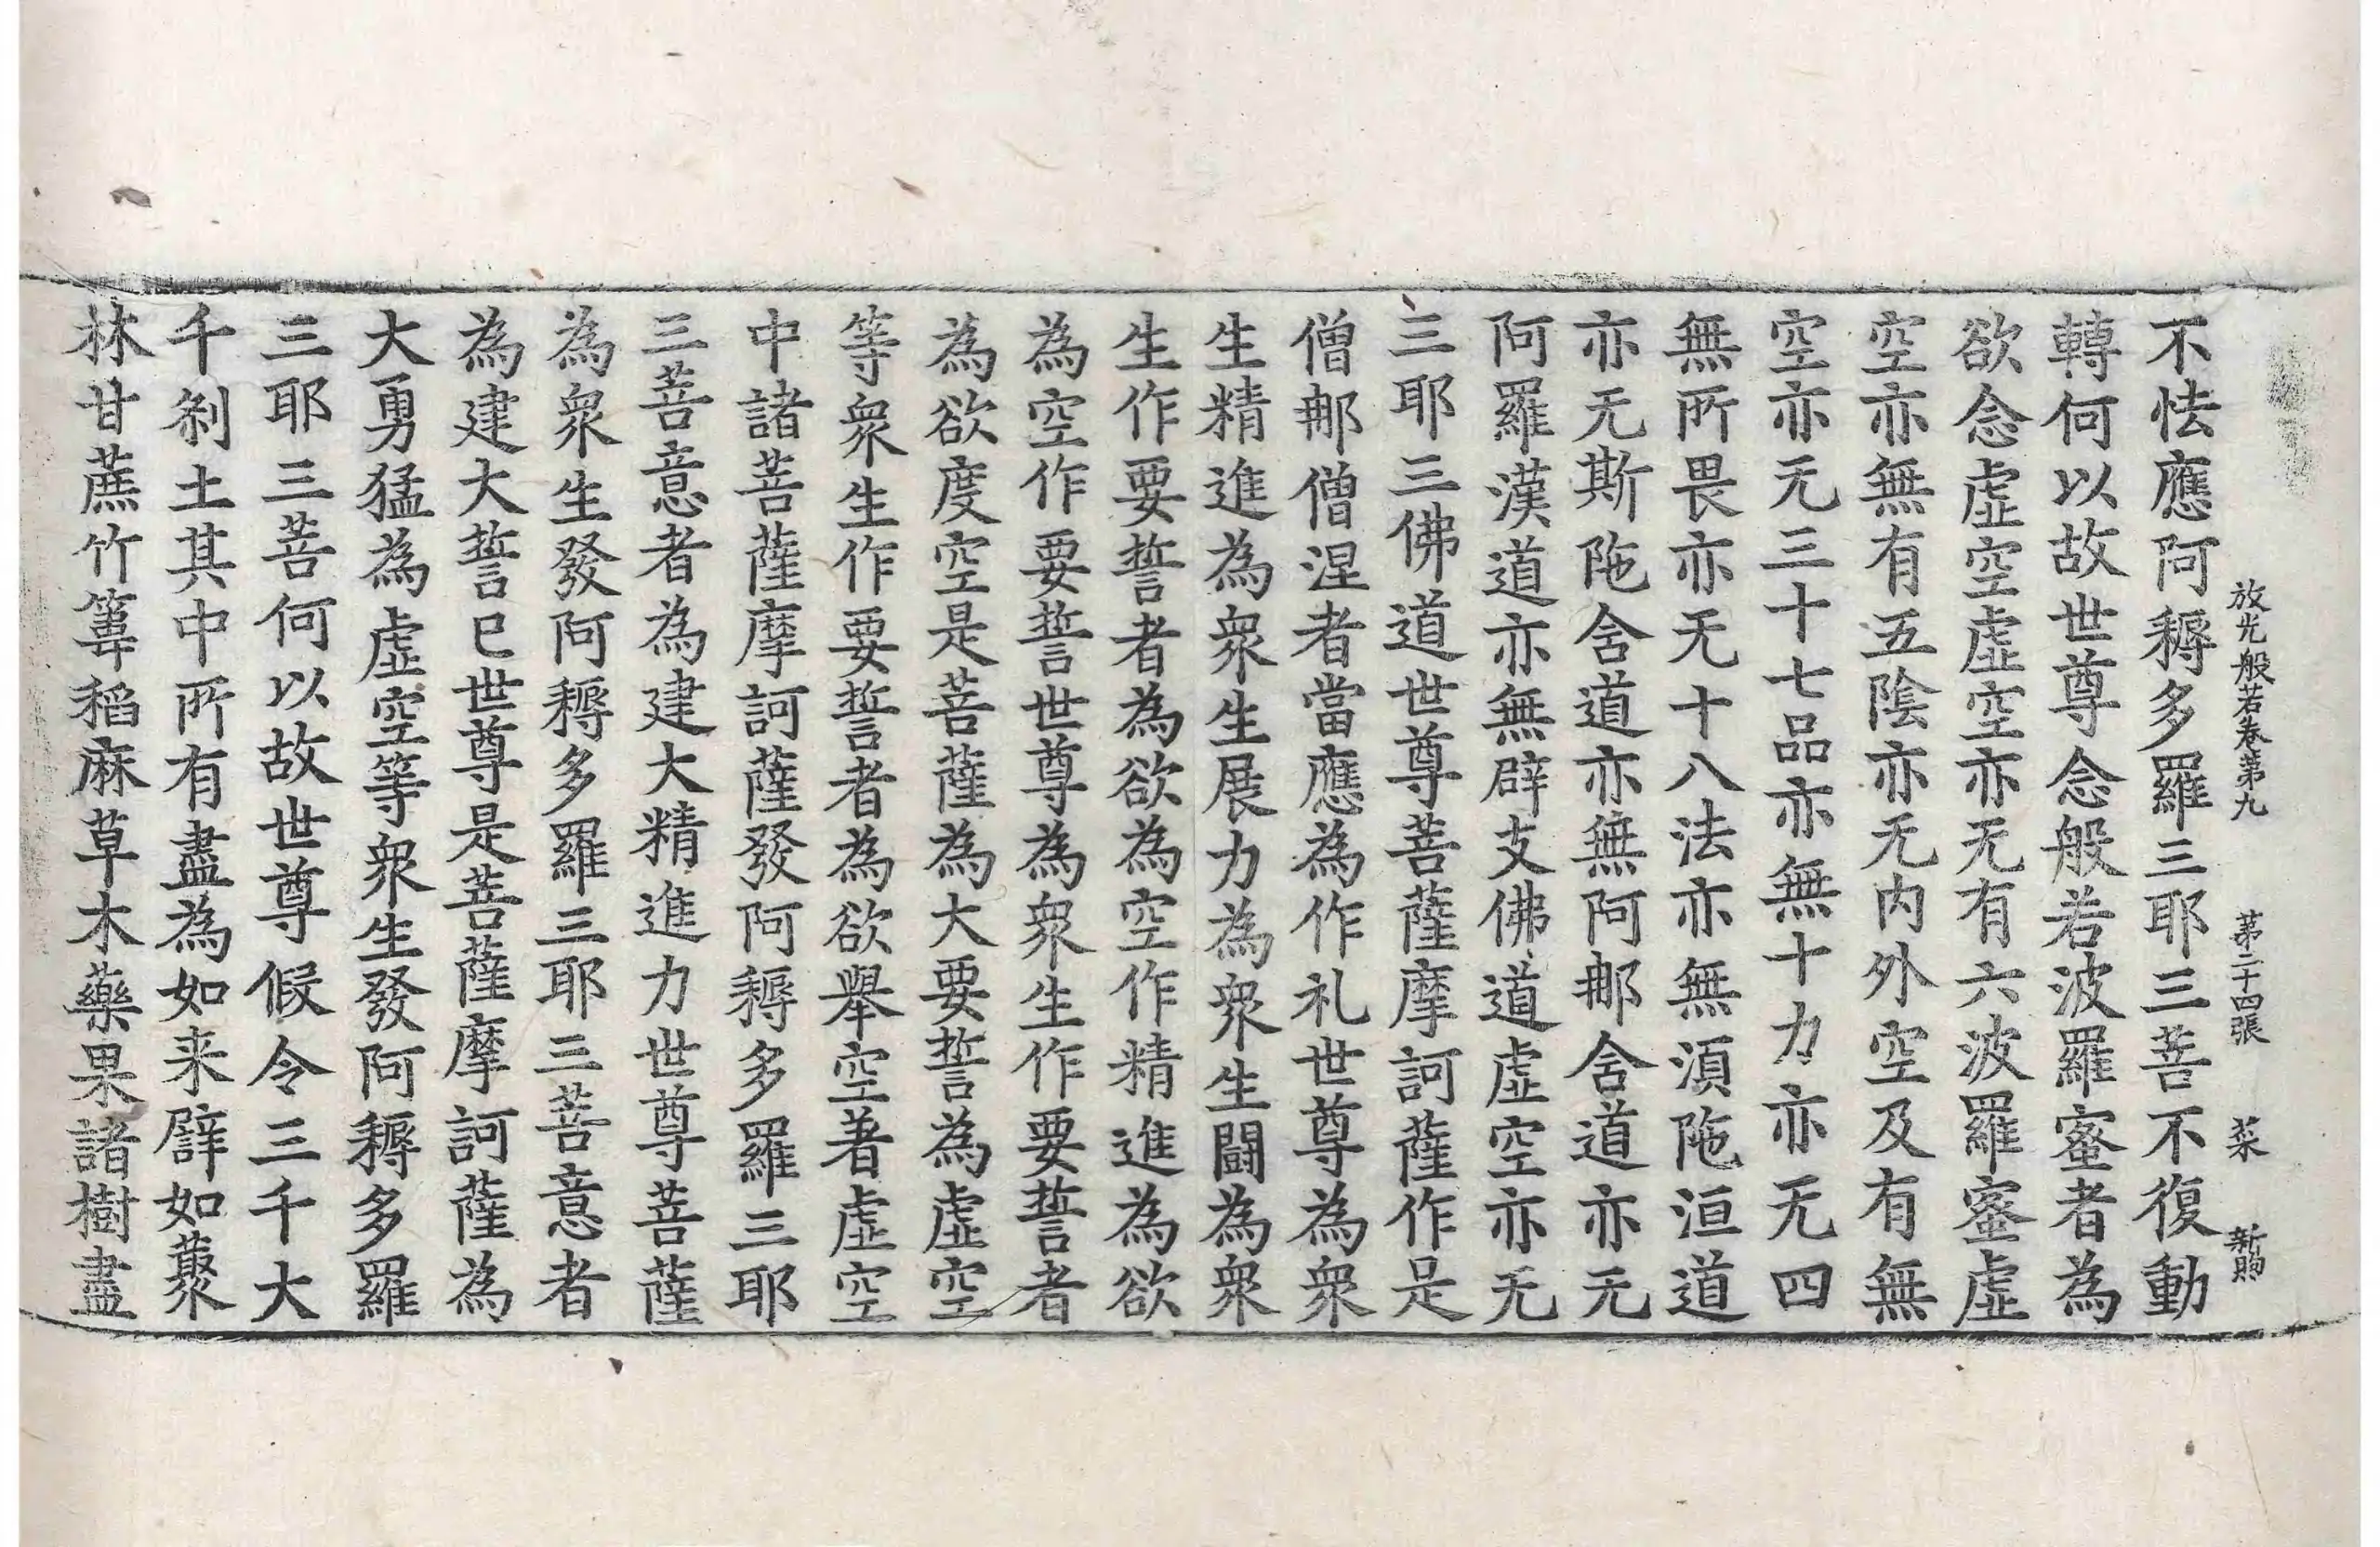 放光般若卷第九　第二十四張　菜
不怯應阿耨多羅三耶三菩不復動
轉何以故世尊念般若波羅蜜者為
欲念虛空虛空亦无有六波羅蜜虛
空亦無有五陰亦无內外空及有無
空亦无三十七品亦無十力亦无四
無所畏亦无十八法亦無須陁洹道
亦无斯陁含道亦無阿那含道亦无
阿羅漢道亦無辟支佛道虛空亦无
三耶三佛道世尊菩薩摩訶薩作是
僧那僧涅者當應為作礼世尊為眾
生精進為眾生展力為眾生鬪為眾
生作要誓者為欲為空作精進為欲
為空作要誓世尊為眾生作要誓者
為欲度空是菩薩為大要誓為虛空
等眾生作要誓者為欲舉空著虛空
中諸菩薩摩訶薩發阿耨多羅三耶
三菩意者為建大精進力世尊菩薩
為眾生發阿耨多羅三耶三菩意者
為建大誓已世尊是菩薩摩訶薩為
大勇猛為虛空等眾生發阿耨多羅
三耶三菩何以故世尊假令三千大
千剎土其中所有盡為如来譬如藂
林甘蔗竹䓖稻麻草木藥果諸樹盡